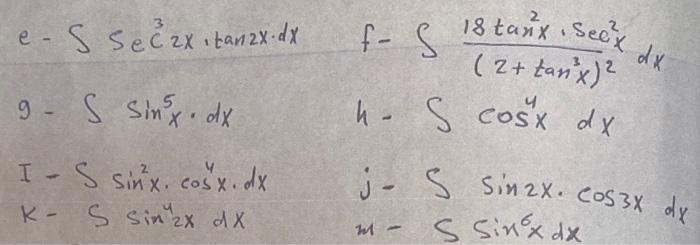 e - ∫ sec³2x · tan2x · dx f - ∫ 18 tan²x · sec²x / (2 + tan³x)² dx
g - ∫ sin⁵x · dx h - ∫ cos⁴x dx
I - ∫ sin²x · cos⁴x · dx j - ∫ sin2x · cos3x dx
K - ∫ sin⁴2x dx m - ∫ sin⁶x dx